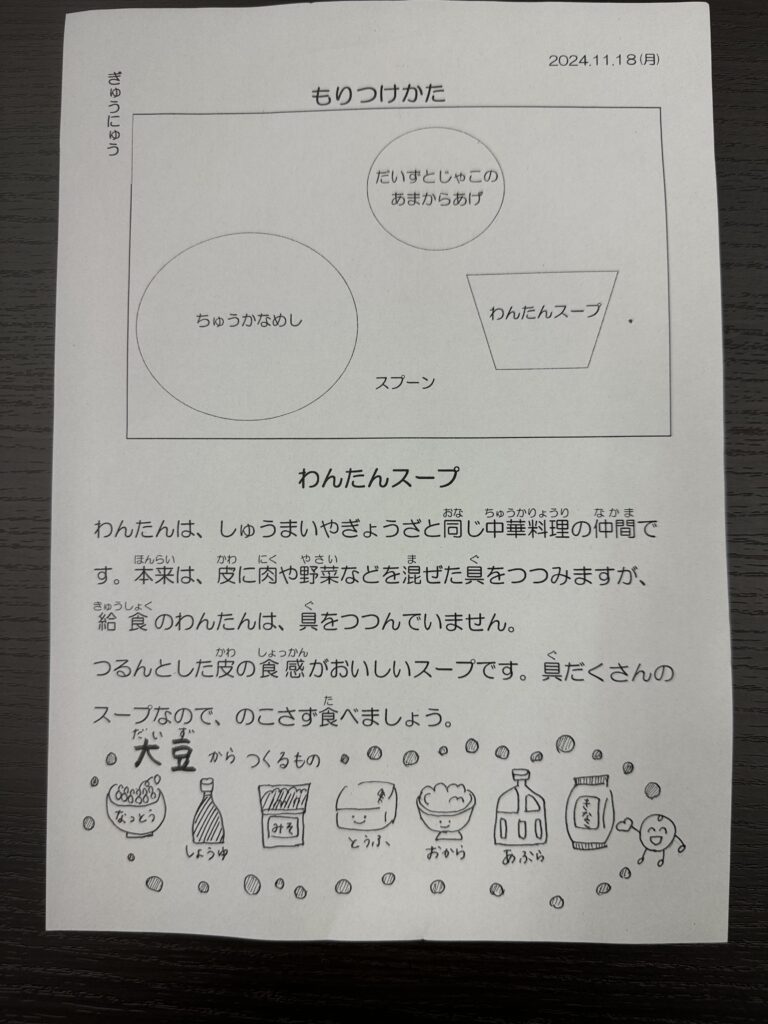 2024.11.18(月)
ぎゅうにゅう
もりつけかた
だいずとじゃこの
あまからあげ
ちゅうかなめし
わんたんスープ
スプーン
わんたんスープ
わんたんは、しゅうまいやぎょうざと同じ中華料理の仲間で
す。本来は、皮に肉や野菜などを混ぜた具をつつみますが、
給食のわんたんは、具をつつんでいません。
つるんとした皮の食感がおいしいスープです。具だくさんの
スープなので、のこさず食べましょう。
大豆からつくるもの
なっとう
しょうゆ
みそ
とうふ
おから
あぶら
きなこ